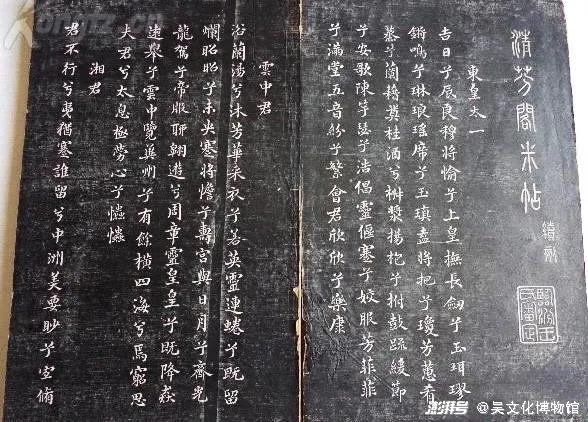 清芬閣米帖
續刻
東皇太一
吉日兮辰良穆將愉兮上皇撫長劍兮玉珥璆
鏘鳴兮琳琅瑤席兮玉瑱盍將把兮瓊芳蕙肴
蒸兮蘭藉奠桂酒兮椒漿揚枹兮拊鼓疏緩節
兮安歌陳竽瑟兮浩倡靈偃蹇兮姣服芳菲菲
兮滿堂五音紛兮繁會君欣欣兮樂康
雲中君
浴蘭湯兮沐芳華采衣兮若英靈連蜷兮既留
爛昭昭兮未央蹇將憺兮壽宮與日月兮齊光
龍駕兮帝服聊翱遊兮周章靈皇皇兮既降猋
遠舉兮雲中覽冀州兮有餘橫四海兮焉窮思
夫君兮太息極勞心兮𢥞𢥞
湘君
君不行兮夷猶蹇誰留兮中洲美要眇兮宜脩
澎湃号@吴文化博物馆